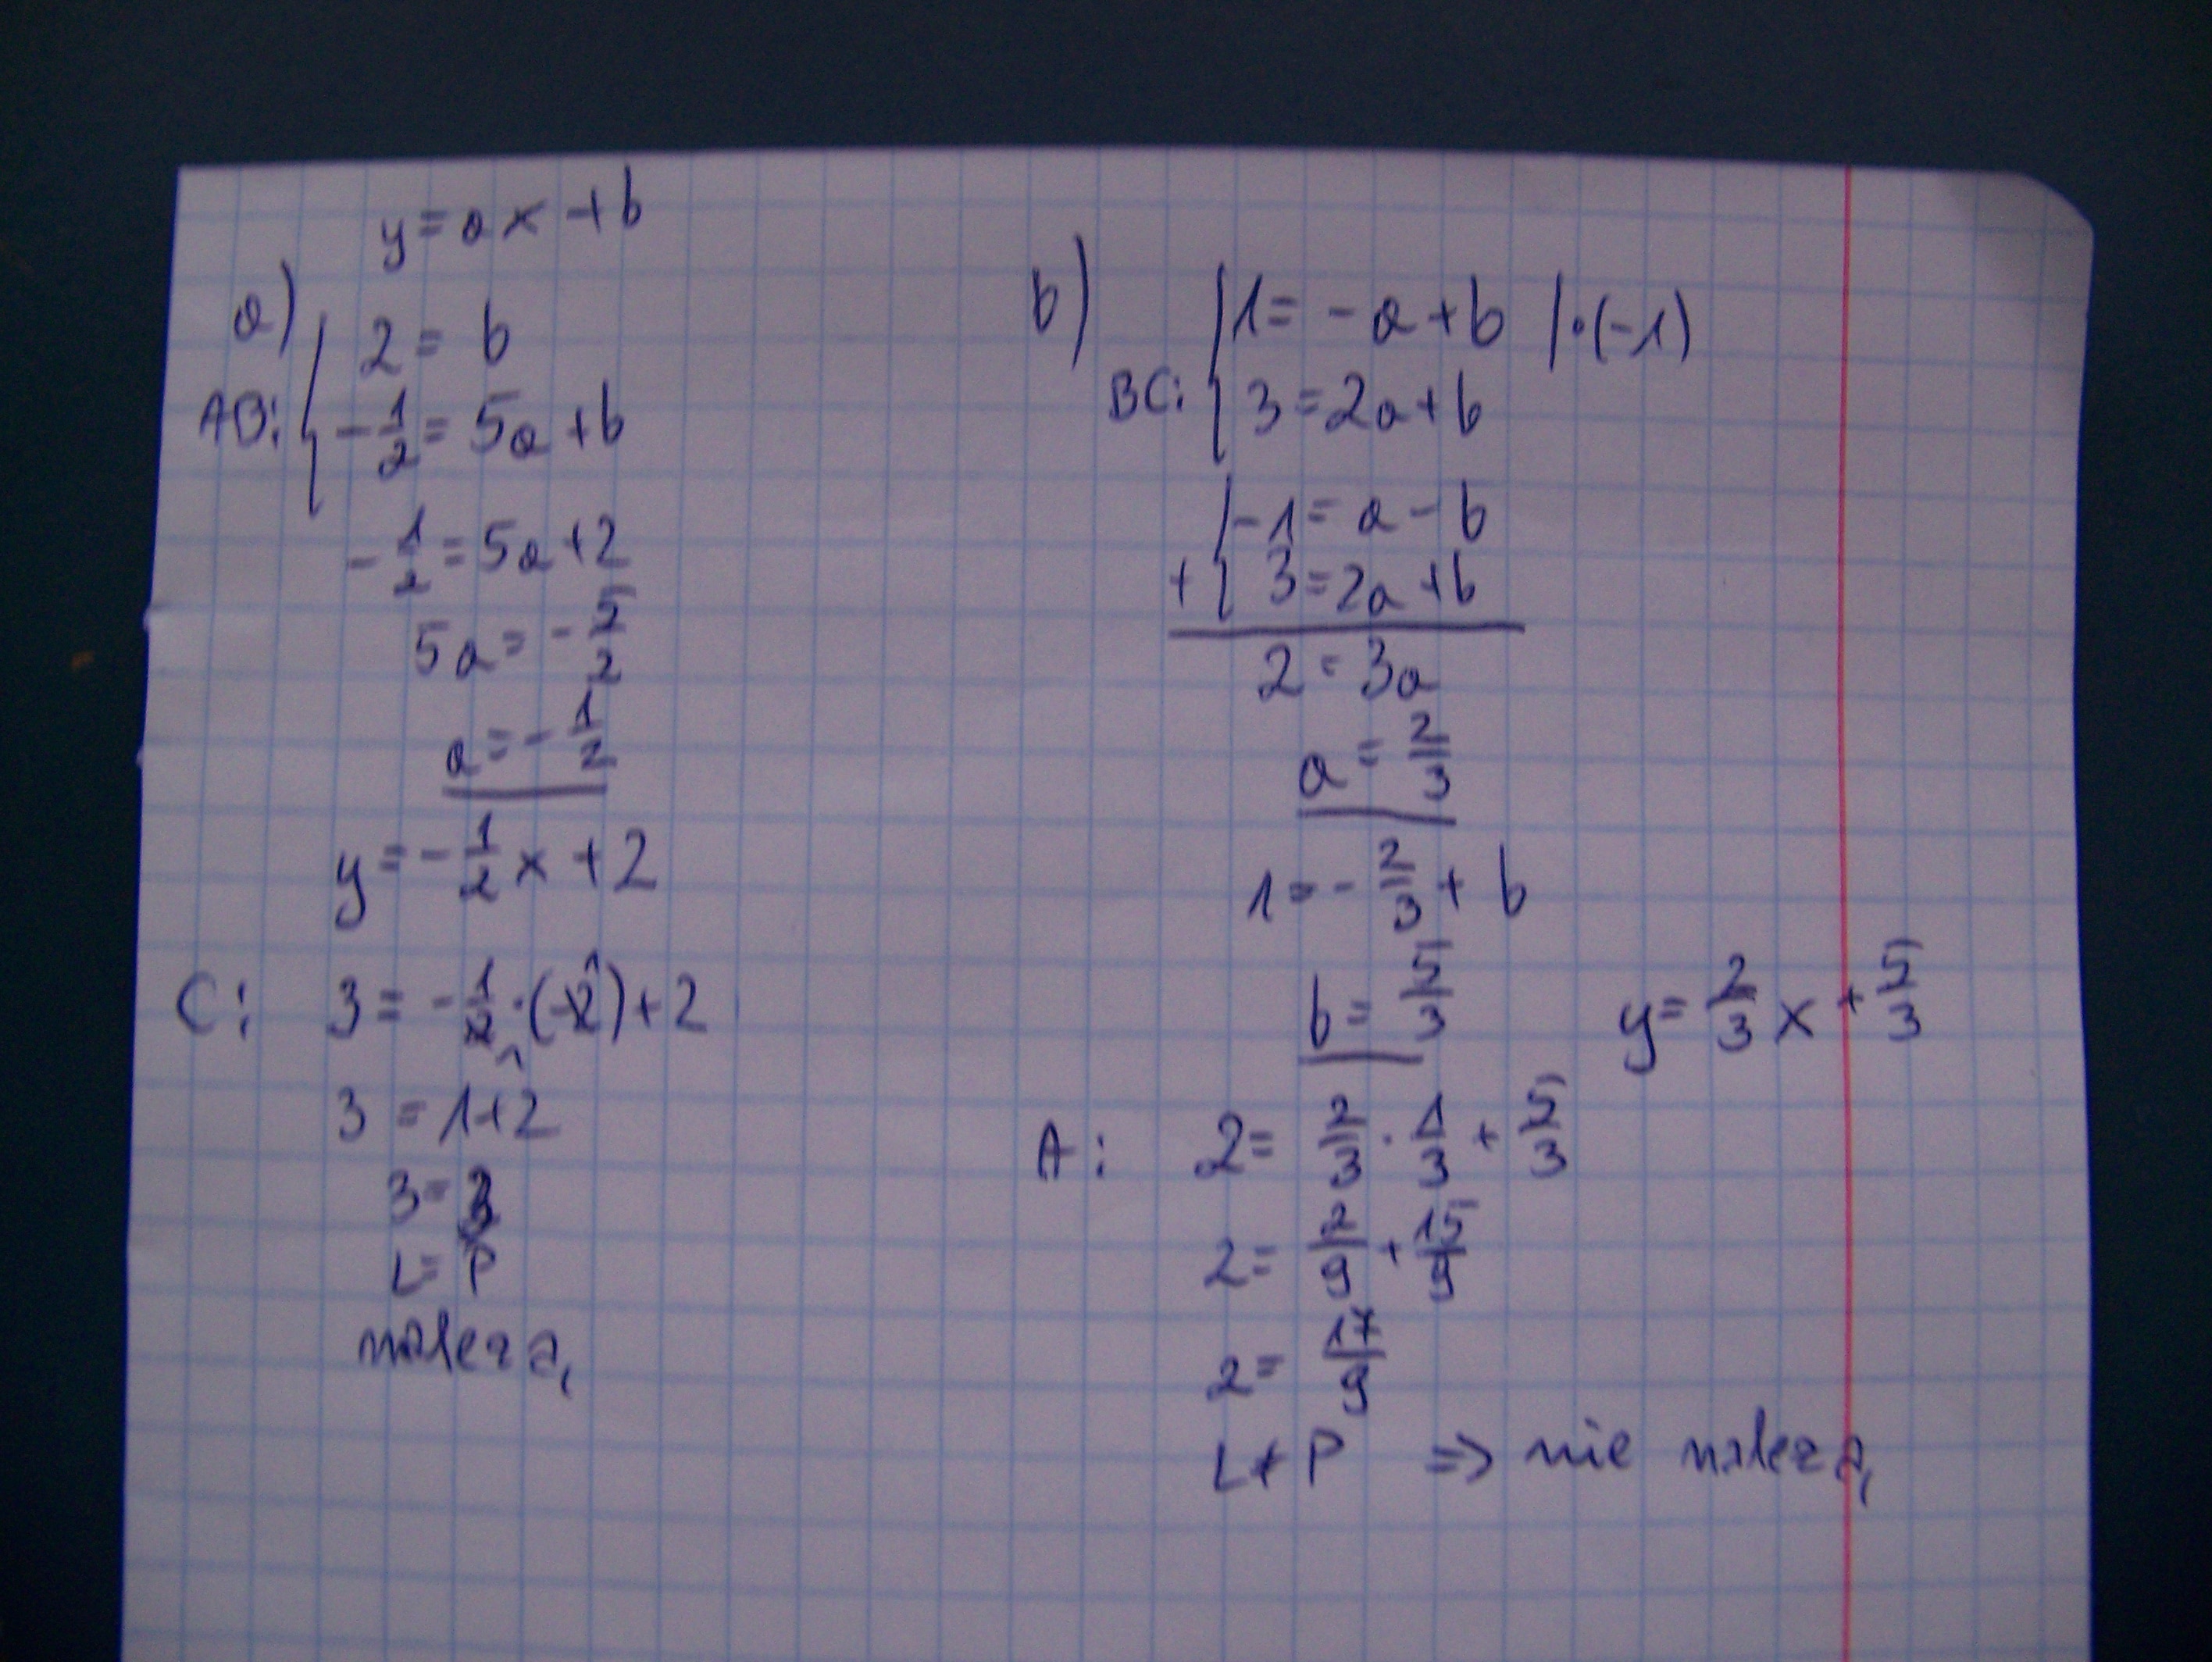 y = ax + b
a)
AB: { 2 = b
-1/2 = 5a + b
-1/2 = 5a + 2
5a = -5/2
a = -1/2
y = -1/2 x + 2
C: 3 = -1/2 · (-2) + 2
3 = 1 + 2
3 = 3
L = P
należą
b)
BC: { 1 = -a + b /·(-1)
3 = 2a + b
+ { -1 = a - b
3 = 2a + b
2 = 3a
a = 2/3
1 = -2/3 + b
b = 5/3 y = 2/3 x + 5/3
A: 2 = 2/3 · 1/3 + 5/3
2 = 2/9 + 15/9
2 = 17/9
L ≠ P => nie należą